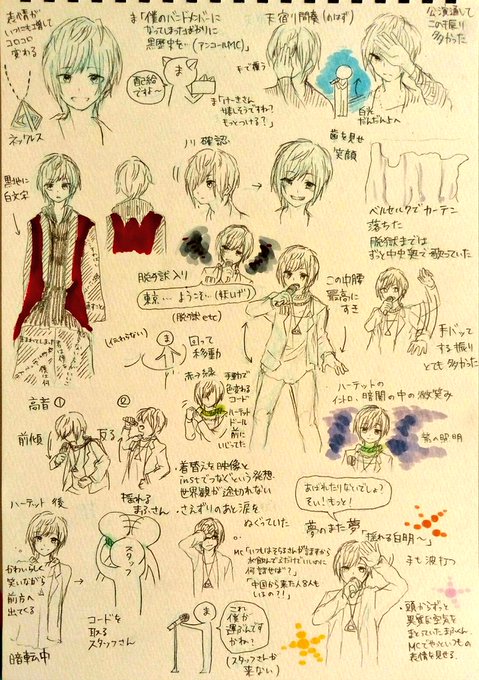 表情が
いつにも増して
コロコロ
変わる
ネックレス
ま「僕のバンドメンバーに
なってしまったばかりに
黒歴史を…(アンコールMC)
配給
ですよ〜
ま
ま「けーきさん
嬉しそうですね?
もっとつける?」
天宿り間奏(のはず)
手で覆う
白光
だんだん上へ
公演通して
この振り
多かった
黒地に
白文字
ノリ確認
歯を見せ
笑顔
ベルセルクでカーテン
落ちた
脱獄までは
ずっと中央奥で歌っていた
脱獄入り
東京…ようこそ…
(脱獄etc)
この中腰
最高に
すき
手バッて
する振り
とても多かった
(伝わらない)
回って
移動
赤→緑
手動で
色変わる
コード
ハーテッド
ドール
前に
いじってた
ハーテッドの
イントロ、暗闇の中の微笑み
紫の照明
高音①
②
前傾
反る
・着替えを映像と
instでつなぐという発想
世界観が途切れない
・さえずりのあと涙を
ぬぐっていた
あばれたりないでしょ?
そい!もっと!
ハーテッド後
揺れる
まふさん
かわいらしく
笑いながら
前方へ
出てくる
暗転中
スタッフ
コードを
取る
スタッフさん
MC「いつもはそらるさんが話すから
水飲んでるだけでいいのに
何話せば?」
「中国から来た人8人も
いるの?!」
ま
これ
僕が
運ぶんです
かね?
(スタッフさんが
来ない)
夢のまた夢
「揺れる自明〜」
手も波打つ
・頭からずっと
異質な空気を
まとっていたまふくん
MCでやっといつもの
表情を見せる.